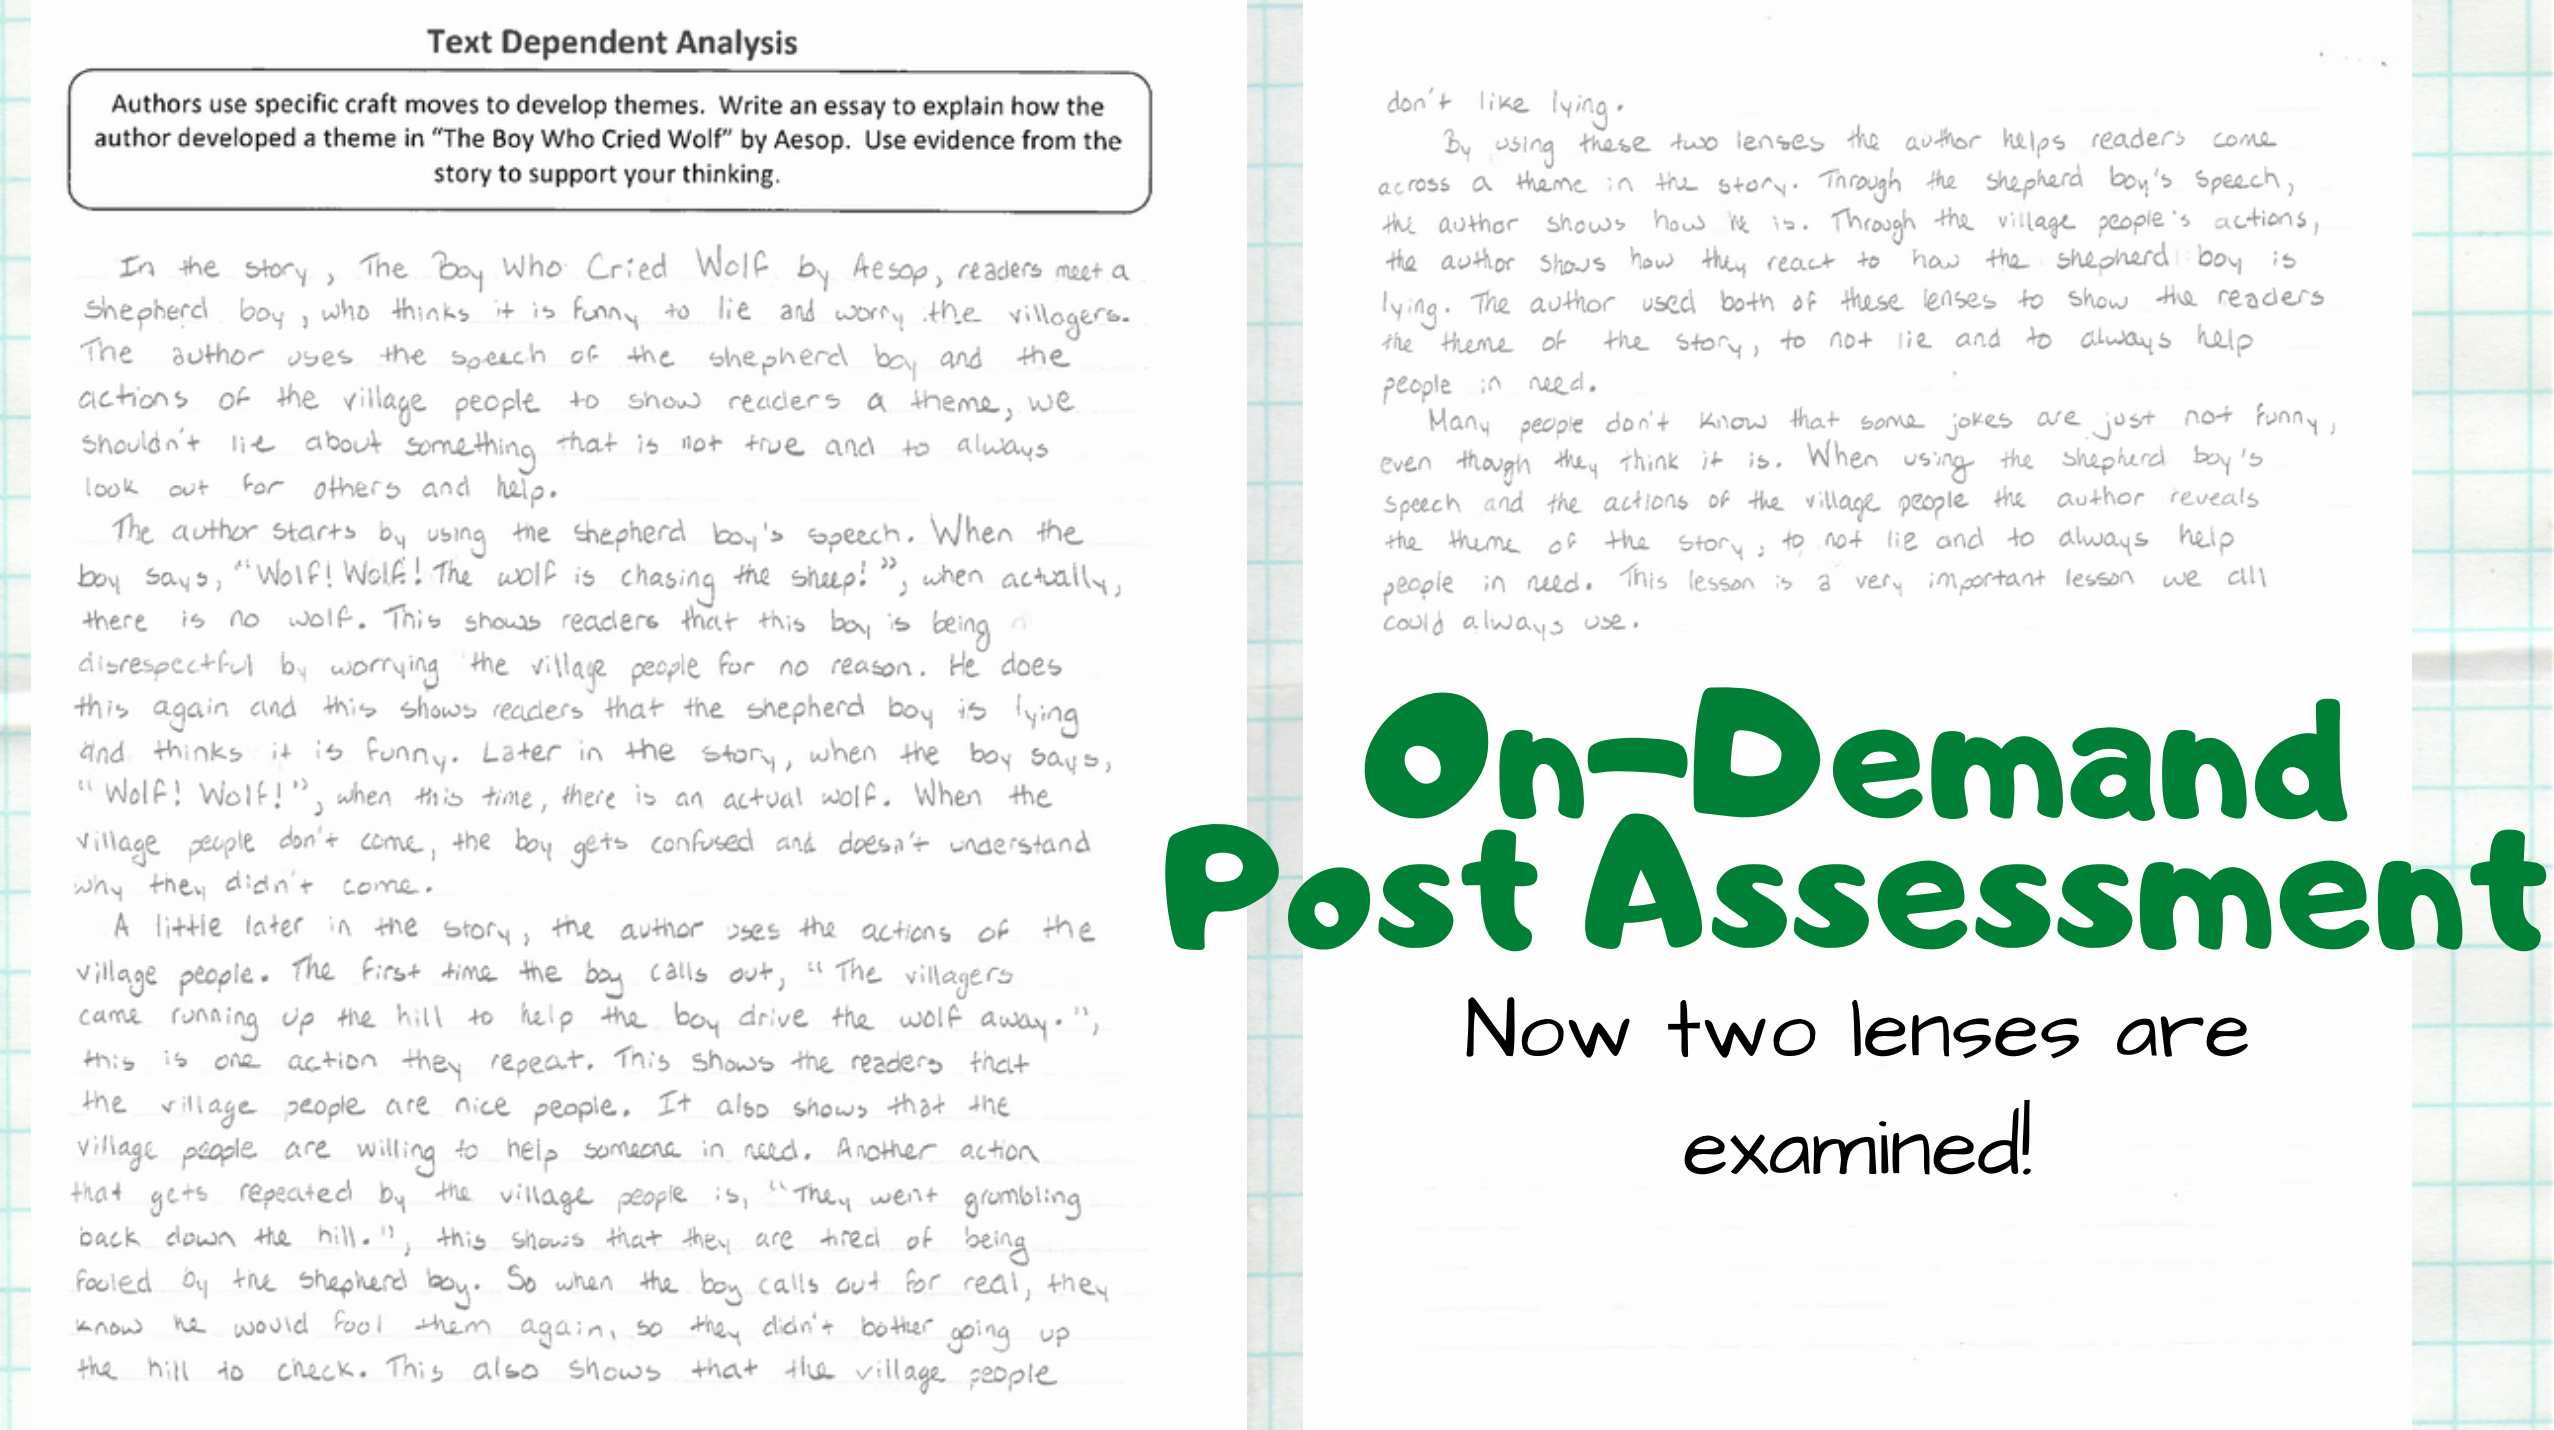 Text Dependent Analysis
Authors use specific craft moves to develop themes. Write an essay to explain how the
author developed a theme in “The Boy Who Cried Wolf” by Aesop. Use evidence from the
story to support your thinking.
In the story, The Boy Who Cried Wolf by Aesop, readers meet a
shepherd boy, who thinks it is funny to lie and worry the villagers.
The author uses the speech of the shepherd boy and the
actions of the village people to show readers a theme, we
shouldn't lie about something that is not true and to always
look out for others and help.
The author starts by using the shepherd boy's speech. When the
boy says, "Wolf! Wolf! The wolf is chasing the sheep!", when actually,
there is no wolf. This shows readers that this boy is being
disrespectful by worrying the village people for no reason. He does
this again and this shows readers that the shepherd boy is lying
and thinks it is funny. Later in the story, when the boy says,
"Wolf! Wolf!", when this time, there is an actual wolf. When the
village people don't come, the boy gets confused and doesn't understand
why they didn't come.
A little later in the story, the author uses the actions of the
village people. The first time the boy calls out, "The villagers
came running up the hill to help the boy drive the wolf away.",
this is one action they repeat. This shows the readers that
the village people are nice people. It also shows that the
village people are willing to help someone in need. Another action
that gets repeated by the village people is, "They went grumbling
back down the hill.", this shows that they are tired of being
fooled by the shepherd boy. So when the boy calls out for real, they
know he would fool them again, so they didn't bother going up
the hill to check. This also shows that the village people
don't like lying.
By using these two lenses the author helps readers come
across a theme in the story. Through the shepherd boy's speech,
the author shows how he is. Through the village people's actions,
the author shows how they react to how the shepherd boy is
lying. The author used both of these lenses to show the readers
the theme of the story, to not lie and to always help
people in need.
Many people don't know that some jokes are just not funny,
even though they think it is. When using the shepherd boy's
speech and the actions of the village people the author reveals
the theme of the story, to not lie and to always help
people in need. This lesson is a very important lesson we all
could always use.
On-Demand
Post Assessment
Now two lenses are
examined!